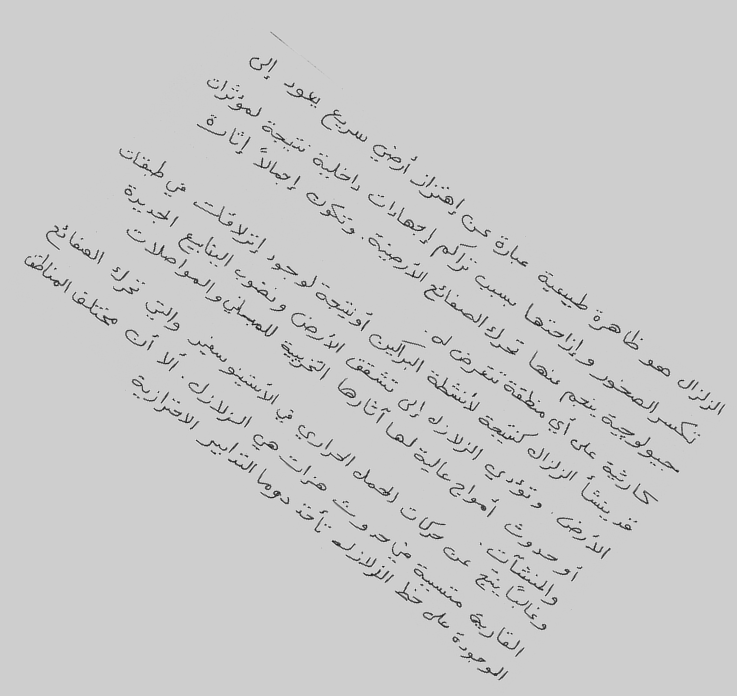 الزلزال هو ظاهرة طبيعية عبارة عن إهتزاز أرضي سريع يعود إلى
تكسر الصخور وإزاحتها بسبب تراكم إجهادات داخلية نتيجة لمؤثرات
جيولوجية ينجم عنها تحرك الصفائح الأرضية. وتكون إجمالاً إثارة
كارثية على أي منطقة تتعرض له.
قد ينشأ الزلزال كنتيجة لأنشطة البراكين أو نتيجة لوجود إنزلاقات في طبقات
الأرض. وتؤدي الزلازل إلى تشقق الأرض ونضوب الينابيع الجديدة
أو حدوث أمواج عالية لها آثارها التخريبية للمباني والمواصلات
والمنشآت.
وغالباً ينتج عن حركات الحمل الحراري في الأستينوسفير والتي تحرك الصفائح
القارية متسببة في حدوث هزات هي الزلازل. ألا أن مختلف المناطق
الموجودة على خط الزلازل تأخذ دوما التدابير الاحترازية